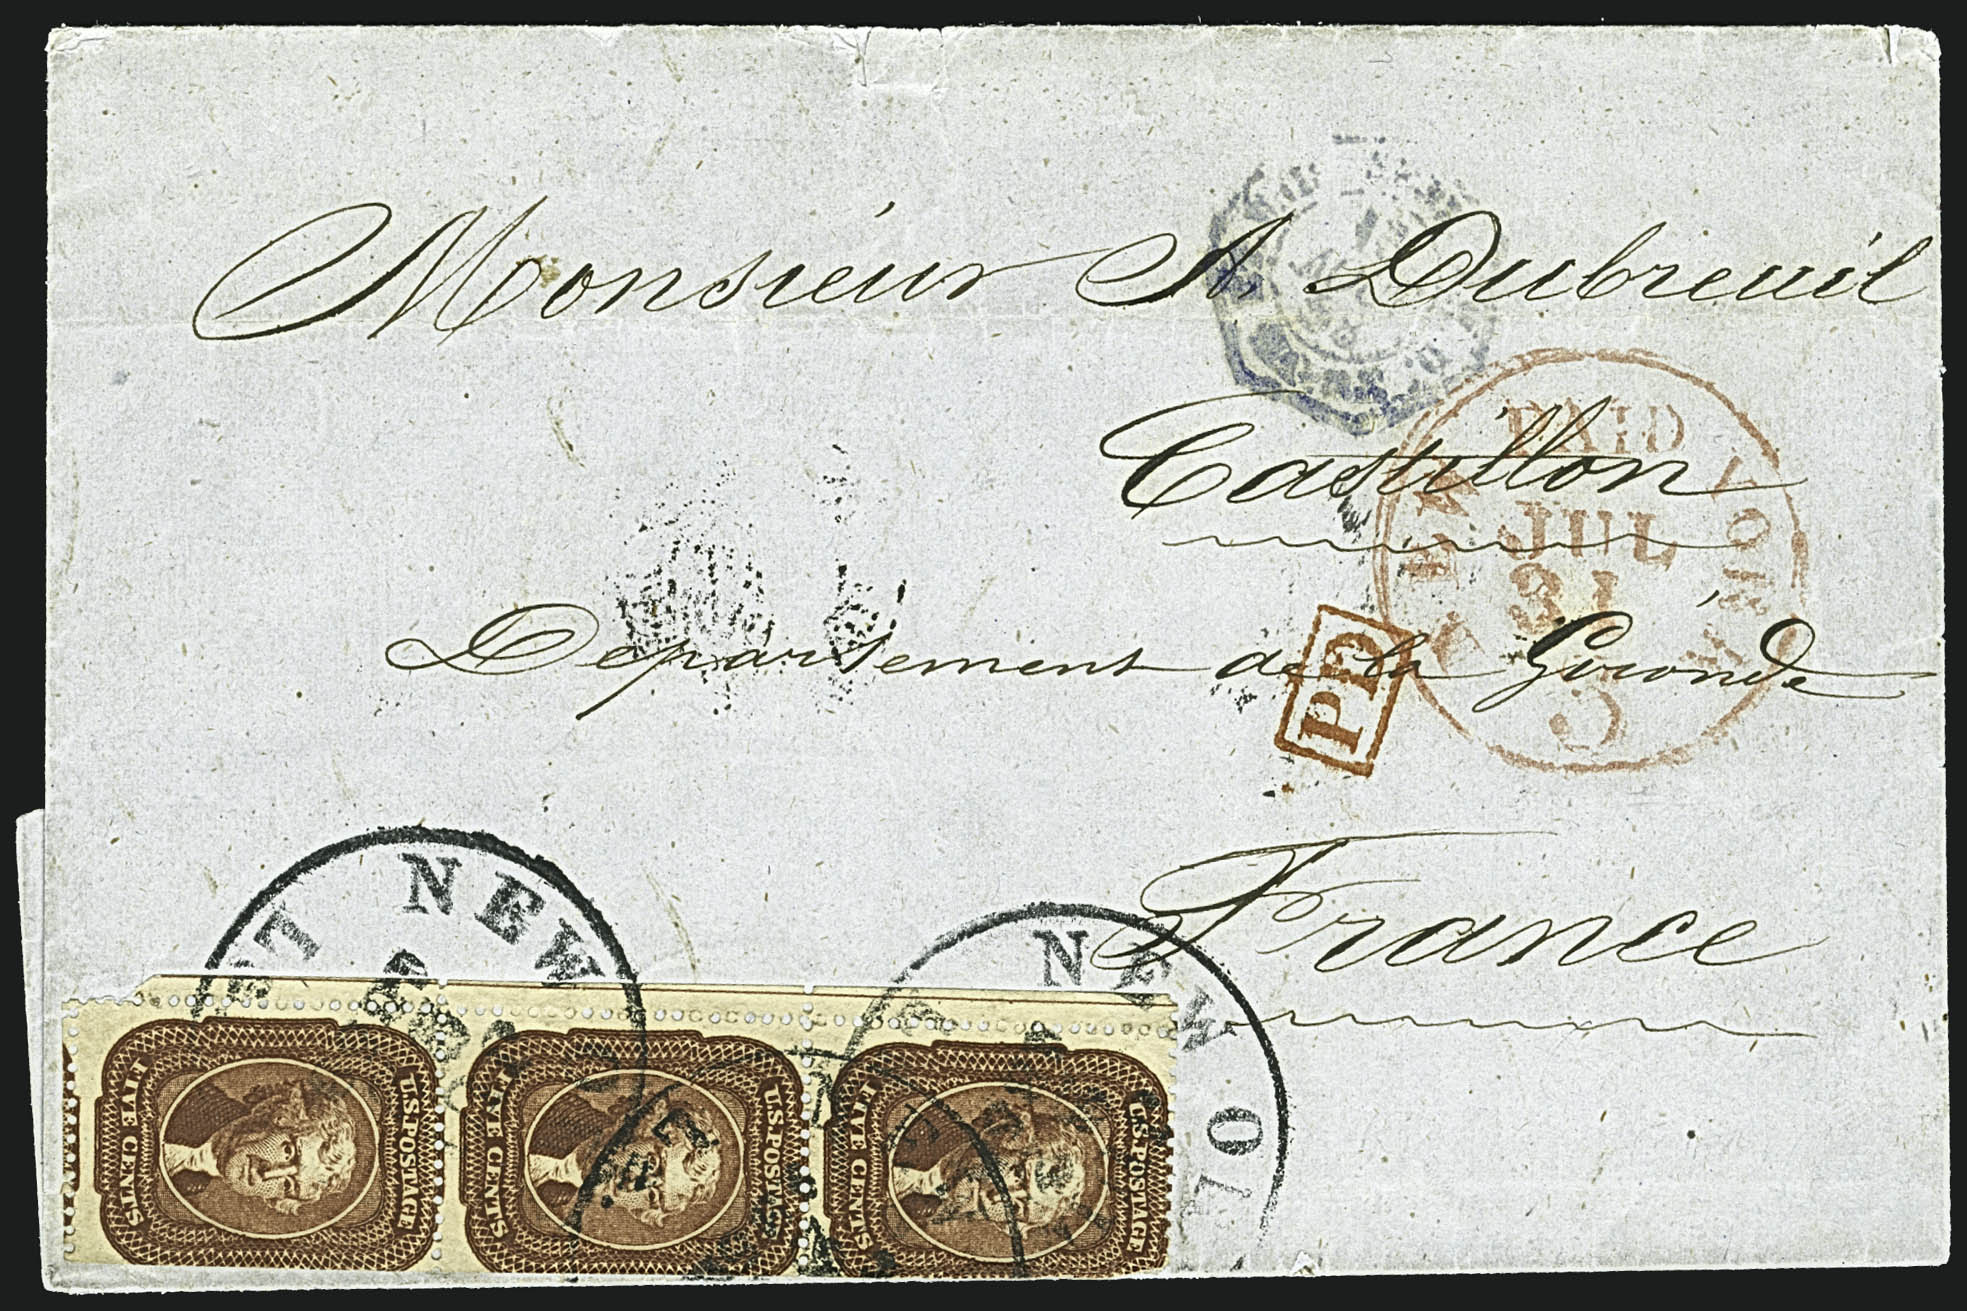 Monsieur A. Dubreuil
Castillon
Département de la Gironde
France
NEW YORK
PAID
JUL
31
PD
NEW
NEW YO
U.S. POSTAGE
FIVE CENTS
U.S. POSTAGE
FIVE CENTS
U.S. POSTAGE
FIVE CENTS